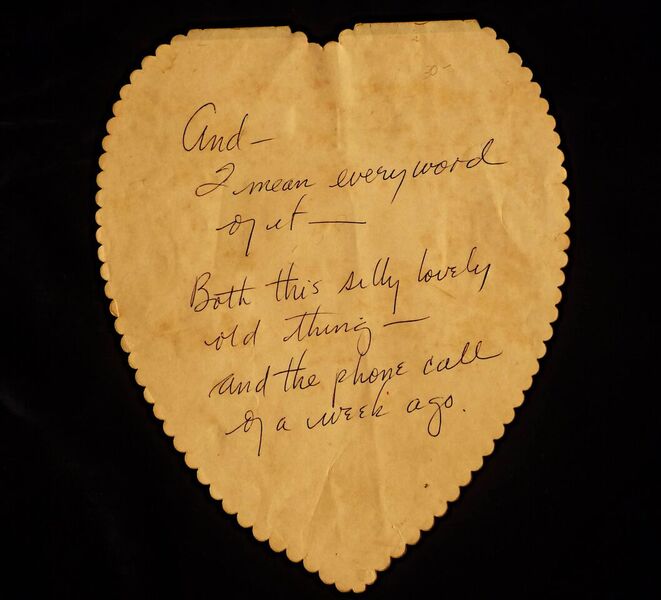 30-
And—
I mean every word
of it —
Both this silly lovely
old thing —
and the phone call
of a week ago.